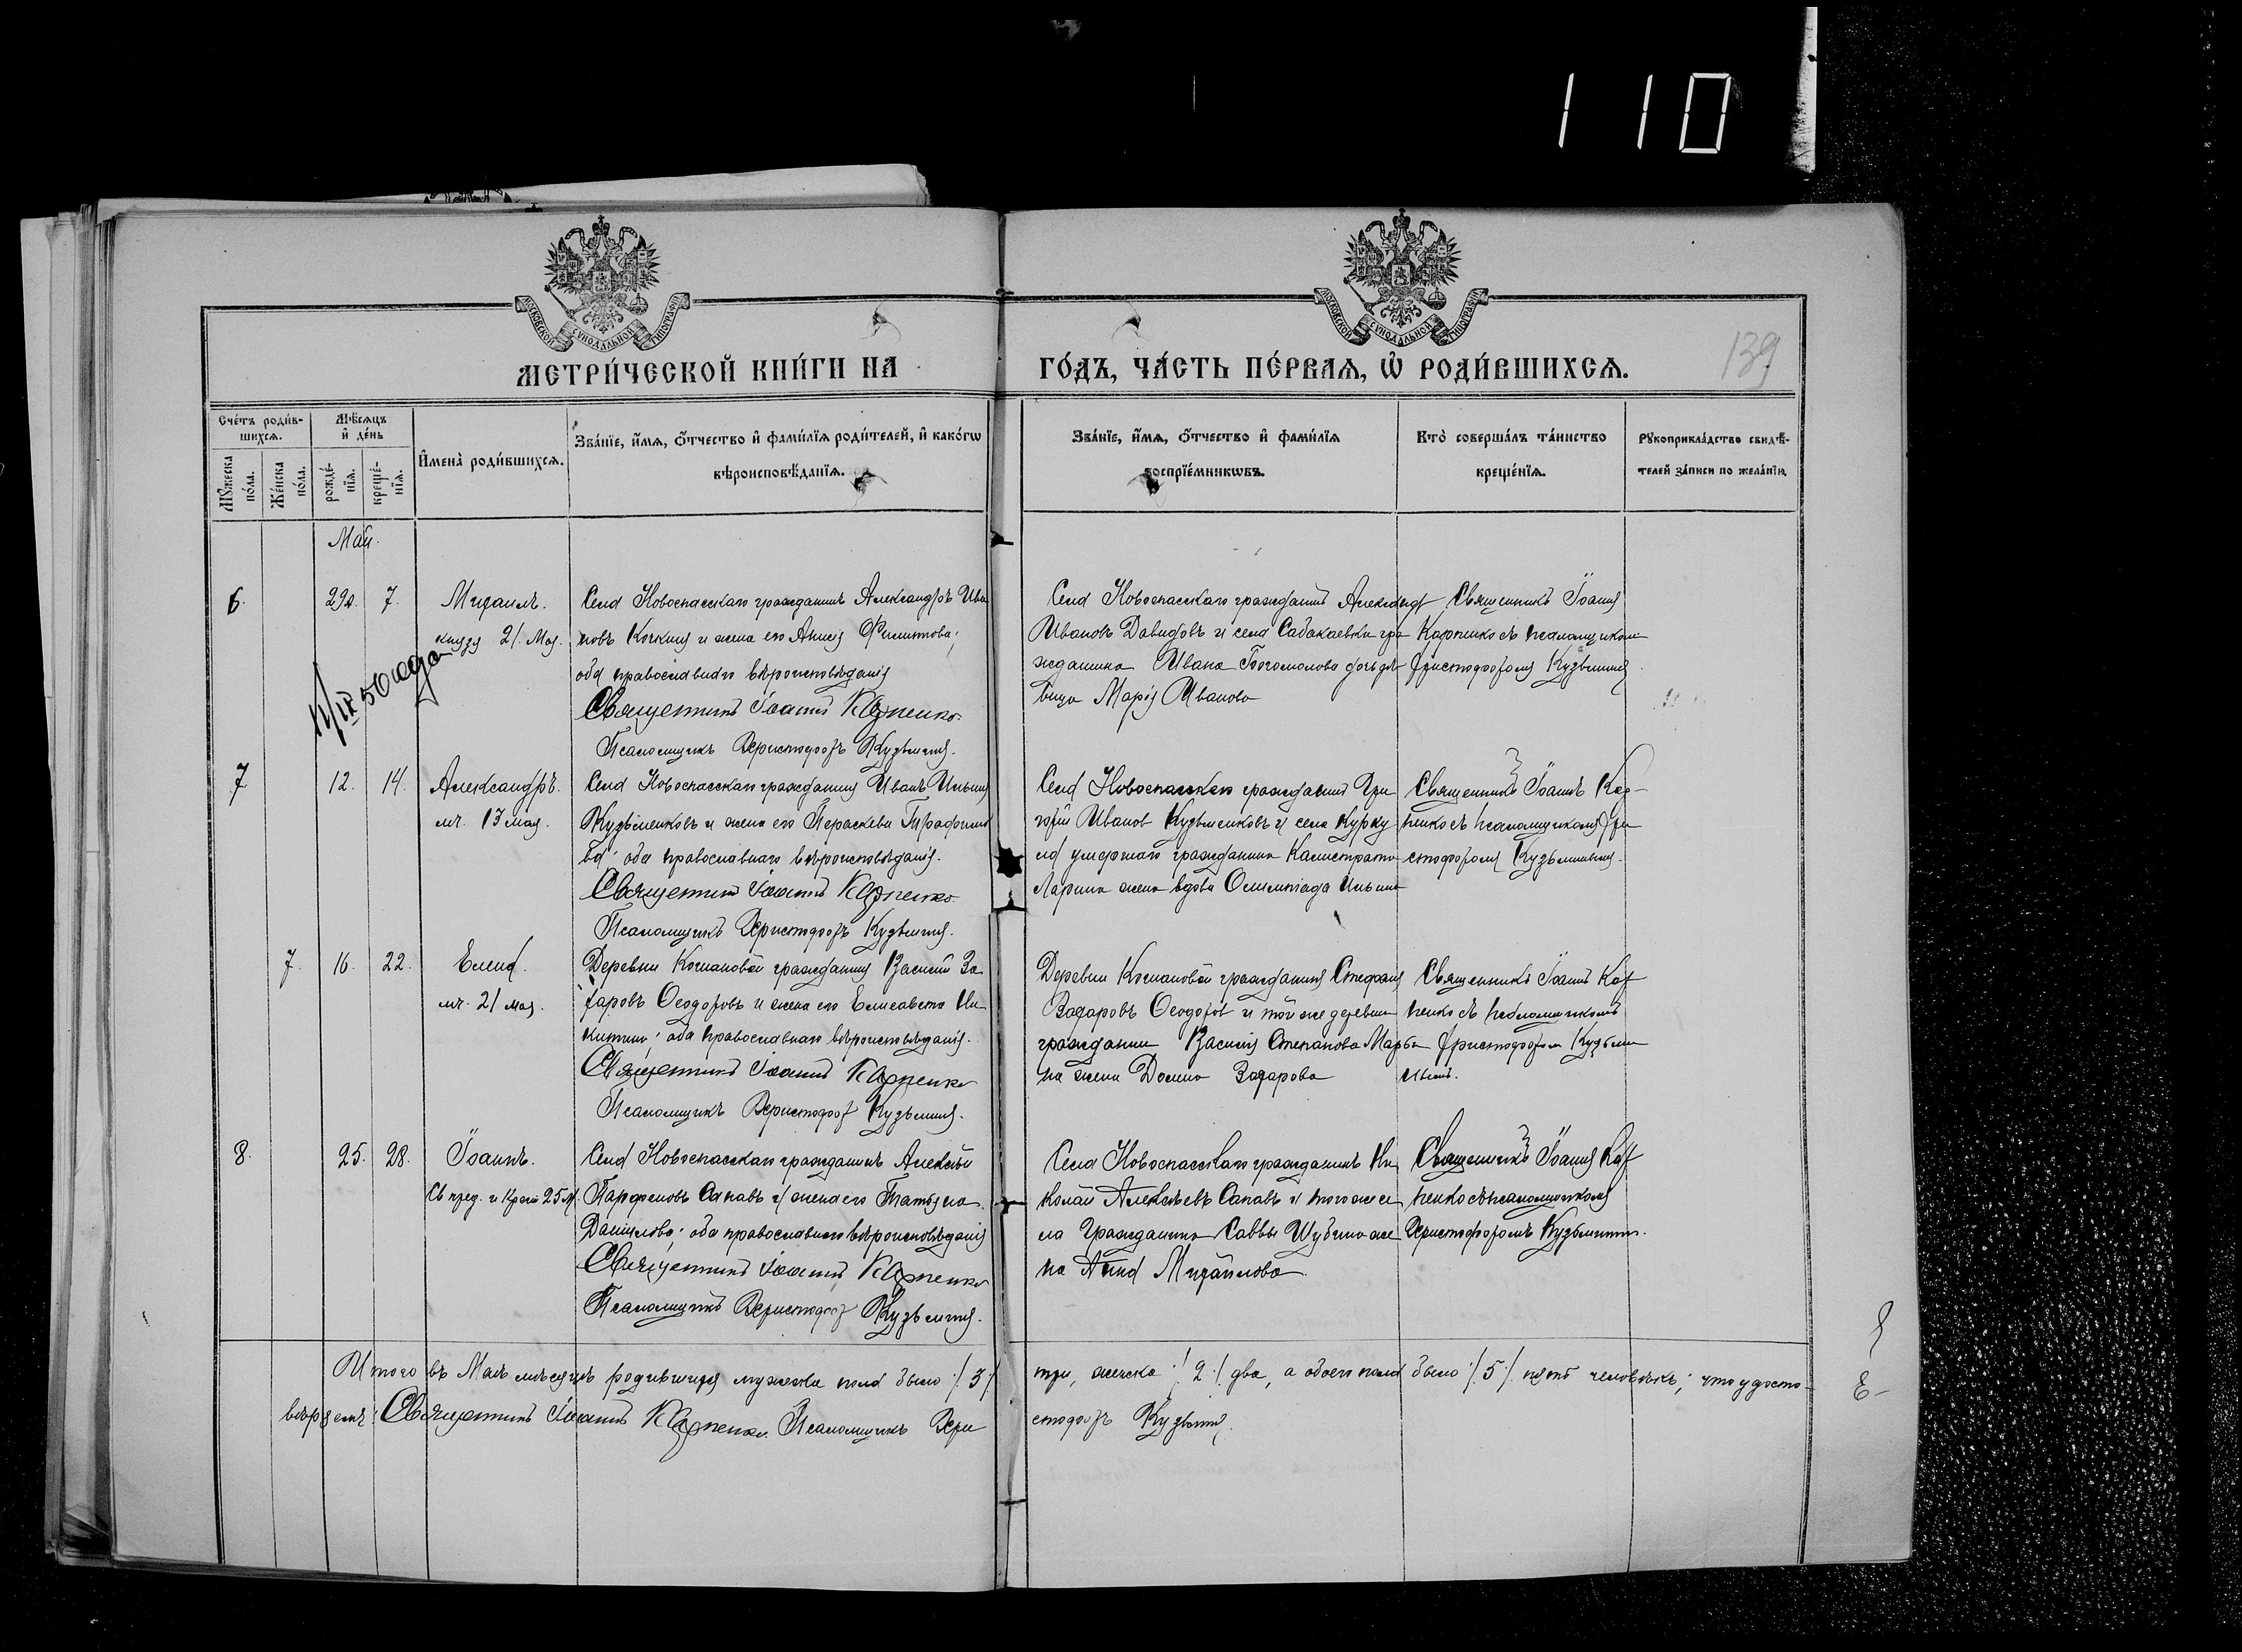 110
МОСКОВСКОЙ СѴНОДАЛЬНОЙ ТИПОГРАФІИ
МОСКОВСКОЙ СѴНОДАЛЬНОЙ ТИПОГРАФІИ
МЕТРИ́ЧЕСКОЙ КНИ́ГИ НА
ГО́ДЪ, ЧА́СТЬ ПЕ́РВАЯ, Ѿ РОДИ́ВШИХСЯ.
139
Сче́тъ роди́в-
шихся.
Мѣ́сяцъ
и҆ де́нь
Мꙋ́жеска
по́ла.
Же́нска
по́ла.
рожде́-
нїя.
креще́-
нїя.
И҆мена̀ роди́вшихся.
Зва́нїе, и҆́мя, ѻ҆́тчество и҆ фами́лїя роди́телей, и҆ како́гѡ
вѣроисповѣ́данїя.
Зва́нїе, и҆́мя, ѻ҆́тчество и҆ фами́лїя
воспрїе́мникѡвъ.
Кто̀ соверша́лъ та́инство
креще́нїя.
Рꙋкоприкла́дство свидѣ́-
телей за́писи по жела́нїю.
Май.
6. 29а. 7. Михаилъ.
князя 21. Мая.
Села Новоспасскаго гражданинъ Александръ Ива
новъ Кочкинъ и жена его Анисія Филиппова;
оба православнаго вѣроисповѣданія
Священникъ Іоаннъ Карпенко.
Псаломщикъ Христофоръ Кузьминъ.
Села Новоспасскаго гражданинъ Александръ
Ивановъ Давидовъ и села Сабакаевки гра
жданина Ивана Богомолова дочь дѣ
вица Марія Иванова
Священникъ Іоаннъ
Карпенко съ псаломщикомъ
Христофоромъ Кузьминымъ.
7 12. 14. Александръ.
мч. 13 мая.
Села Новоспасскаго гражданинъ Иванъ Ильинъ
Кузьменковъ и жена его Параскева Трофимо
ва; оба православнаго вѣроисповѣданія.
Священникъ Іоаннъ Карпенко.
Псаломщикъ Христофоръ Кузьминъ.
Села Новоспасскаго гражданинъ Гри
горій Ивановъ Кузьменковъ и села Курку
ла умершаго гражданина Калистрата
Ларина жена вдова Олимпіада Ильина
Священникъ Іоаннъ Кар-
пенко съ псаломщикомъ Хри
стофоромъ Кузьминымъ.
7. 16. 22. Елена.
мч. 21 мая.
Деревни Кочкановой гражданинъ Василій За
харовъ Ѳеодоровъ и жена его Елисавета Ни
китина; оба православнаго вѣроисповѣданія.
Священникъ Іоаннъ Карпенко
Псаломщикъ Христофоръ Кузьминъ.
гражданинъ Стефанъ
Захаровъ Ѳеодоровъ и той же деревни
гражданина Василія Степанова
на жена Домна Захарова
Священникъ Іоаннъ Кар
пенко съ псаломщикомъ
Христофоромъ Кузьми
нымъ.
8. 25. 28. Іоаннъ.
Св. пред. и Крест. 25 М.
Села Новоспасскаго гражданинъ Алексѣй
Парфеновъ Сапавъ и жена его Татьяна
Данилова; оба православнаго вѣроисповѣданія
Священникъ Іоаннъ Карпенко
Псаломщикъ Христофоръ Кузьминъ.
Села Новоспасскаго гражданинъ Ни
колай Алексѣевъ Сапавъ и того же се
ла Гражданина Саввы Шубина же
на Анна Михайлова.
Священникъ Іоаннъ Кар
пенко съ псаломщикомъ
Христофоромъ Кузьминымъ.
Итого въ Маѣ мѣсяцѣ родившихся мужеска пола было /.3./
три, женска /.2./ два, а обоего пола было /.5./ пять человѣкъ; что удосто-
вѣряемъ: Священникъ Іоаннъ Карпенко. Псаломщикъ Хри
стофоръ Кузьминъ.